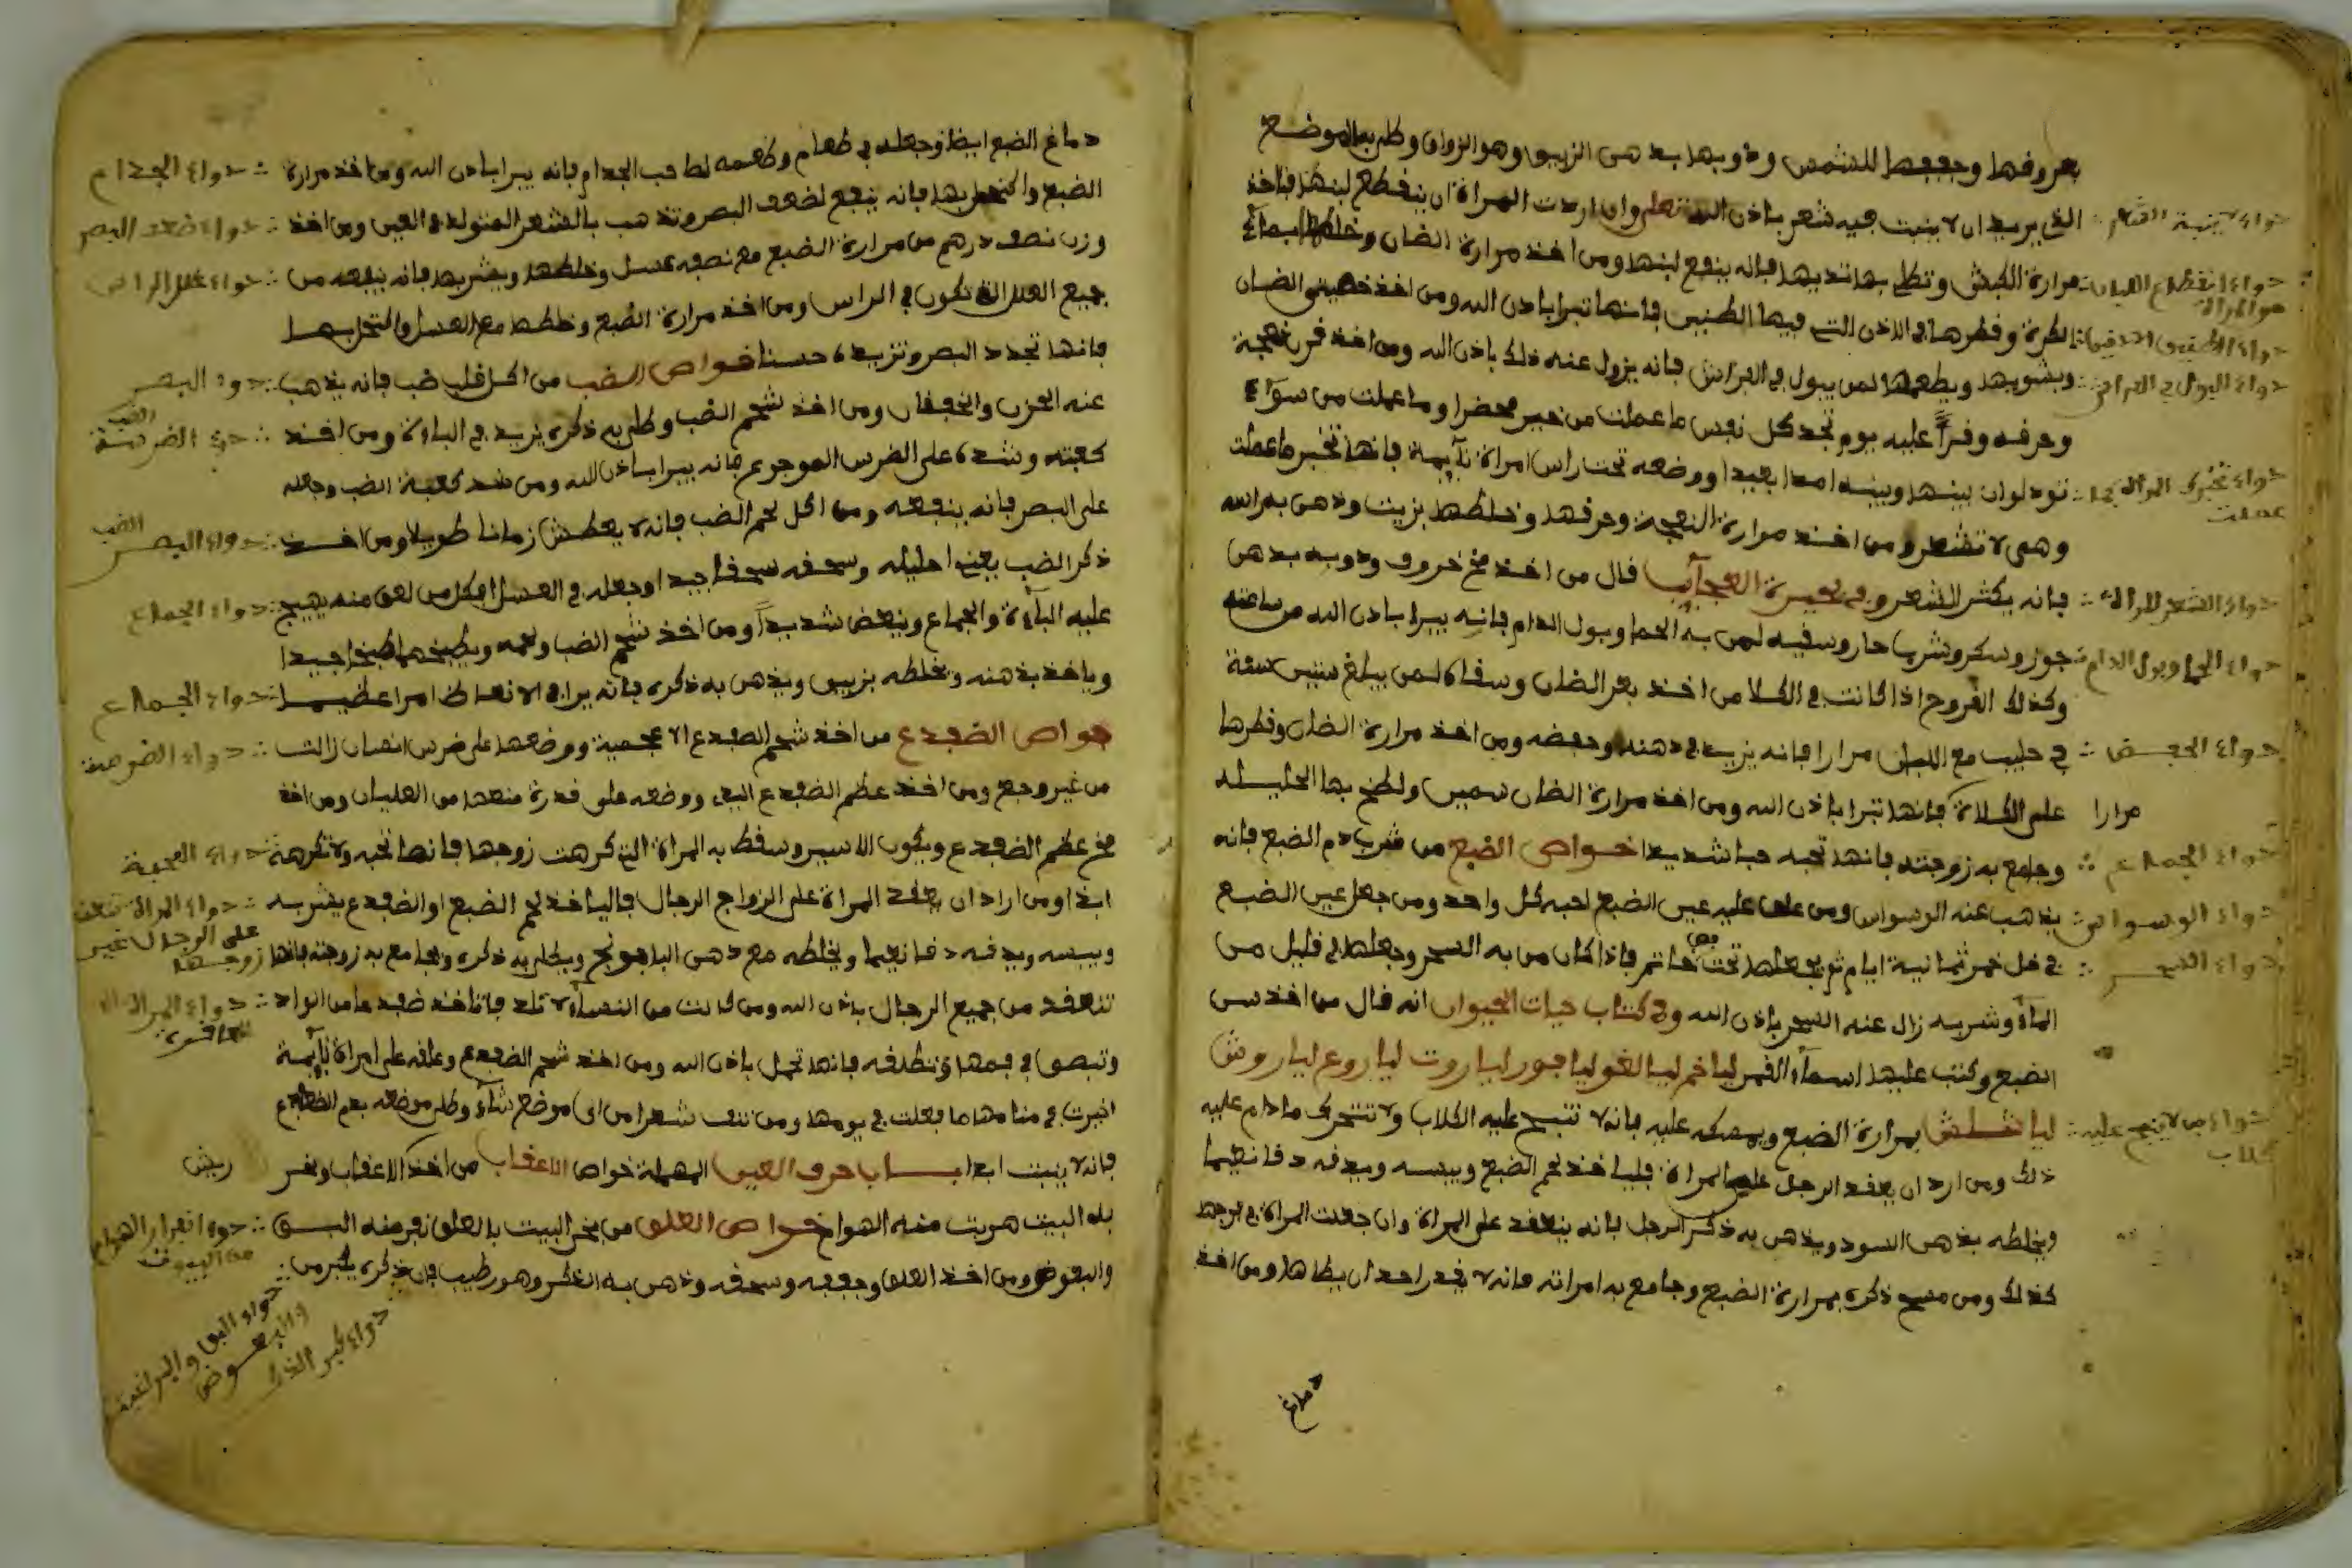 بعروفها وجففها للشمس وذوبها بدهن الزيبق وهو الزواق وطلى بها الموضع
الذي يريد ان لا ينبت فيه شعر باذن الله تعلى وان اردت المراة ان ينقطع لبنها فتاخذ
مرارة الكبش وتطلي بها ثديها فانه ينفع لبنها ومن اخذ مرارة الضان وخلطها بماء
الكرة وقطرها في الاذن التي فيها الطنين فانها تبرا باذن الله ومن اخذ خصيتي الضان
ويشويها ويطعمها لمن يبول في الفراش فانه يزول عنه ذلك باذن الله ومن اخذ قرن نعجة
وحرفه وقرأ عليه يوم تجد كل نفس ما عملت من خير محضرا وما عملت من سوء
تود لو ان بينها وبينه امدا بعيدا ووضعه تحت راس امراة نآيمة فانها تخبر ما عملت
وهي لا تشعر ومن اخذ مرارة النعجة وحرقها وخلطها بزيت ودهن به راسه
فانه يكثر الشعر وفي خميرة العجآيب قال من اخذ مخ خروف وذوبه بدهن
جوز وسكر وشرب حار وسفيه لمن به الحما وبول الدام فانه يبرا باذن الله من ساعته
وكذلك القروح اذا كانت في الكلا من اخذ بعر الضان وسفاه لمن يبلغ ستين سنة
في حليب مع اللبان مرارا فانه يزيد في ذهنه وحفضه ومن اخذ مرارة الضان وقطرها
مرارا على الكلاة فانها تبرا باذن الله ومن اخذ مرارة الضان سمين ولطخ بها احليله
وجامع به زوجته فانها تحبه حبا شديدا خواص الضبع من شرب دم الضبع فانه
يذهب عنه الوسواس ومن علق عليه عين الضبع احبه كل واحد ومن جعل عين الضبع
في خل خمر ثمانية ايام ثم يجعلها تحت فص خاتم فاذا كان من به السحر وجعلها في قليل من
المآء وشربه زال عنه السحر باذن الله وفي كتاب حيات الحيوان انه قال من اخذ سن
الضبع وكتب عليها اسمآء القمر لياخم ليالغو ليافور لياروت لياروع لياروش
لياشلش بمرارة الضبع ويمسكه عليه فانه لا تنبح عليه الكلاب ولا تتحرك ما دام عليه
ذلك ومن اراد ان يعقد الرجل على المراة فليا خذ لحم الضبع وييبسه ويدقه دقا نعيما
ويخلطه بذهن السود ويذهن به ذكر الرجل فانه ينعقد على المراة وان جعلت المراة في فرجها
كذلك ومن مسح ذكره بمرارة الضبع وجامع به امراته فانه لا يقدر احد ان يطاها ومن اخذ
دماغ
دواء انقطاع اللبان
من المراة
دواء البول في الفراش
دواء الشعر للراس
دواء الحما وبول الدام
دواء الحفض
دواء الجماع
دواء الوسواس
دواء السحر
دماغ الضبع ايضا وجعله في طعام وطعمه لصاحب الجدام فانه يبرا باذن الله ومن اخذ مرارة
الضبع واكتحل بها فانه ينفع لضعف البصر وتذهب بالشعر المتولد في العين ومن اخذ
وزن نصف درهم من مرارة الضبع مع نصفه عسل وخلطها ويشربها فانه ينفعه من
جميع العلل التي تكون في الراس ومن اخذ مرارة الضبع وخلطها مع العسل واكتحل بها
فانها تحدد البصر وتزيده حسنا خواص الضب من اكل قلب ضب فانه يذهب
عنه الحزن والخفقان ومن اخذ شحم الضب وطلى به ذكره يزيد في الباءة ومن اخذ
كعبته وشده على الضرس الموجوع فانه يبرا باذن الله ومن شد كعبة الضب وجعله
على البصر فانه ينفعه ومن اكل لحم الضب فانه لا يعطش زمانا طويلا ومن اخذ
ذكر الضب يعني احليله وسحقه سحقا جيدا وجعله في العسل فكل من لعق منه يهيج
عليه البآءة والجماع وينعض شديدا ومن اخذ شحم الضب ولحمه ويطبخهما طبخا جيدا
وياخذ بذهنه ويخلطه بزيبق ويذهن به ذكره فانه يرا في الانعاظ امرا عظيما
خواص الضفدع من اخذ شحم الضفدع الاعجمية ووضعها على ضرس انسان زالت
من غير وجع ومن اخذ عظم الضفدع البري ووضعه على قدرة منعها من الغليان ومن اخذ
مخ عظم الضفدع ويكون اليسير وسقط به المراة التي كرهت زوجها فانها تحبه ولا تكرهه
ابدا ومن اراد ان يعقد المراة على الزواج الرجال فاليا خذ لحم الضبع او الضفدع يقشربه
وييبسه ويدقه دقا نعيما ويخلطه مع دهن البابونج ويطلى به ذكره ويجامع به زوجته فانها
تنعقد من جميع الرجال باذن الله ومن كانت من النسآء لا تلد فاتاخذ ضفدعا من الواد
وتبصق في فمها وتطلقه فانها تحمل باذن الله ومن اخذ شحم الضفدع وعلقه على امراة نآيمة
اخبرت في منامها ما فعلت في يومها ومن نتف شعرا من اي موضع شآء وطلى موضعه بدم الضفادع
فانه لا ينبت ابدا باب حرف العين المهملة خواص الاعقاب من اخذ الاعقاب وبخر ريش
به البيت هربت منه الهوام خواص العلق من بخر البيت بالعلق نفر منه البق
والبعوض ومن اخذ العلق وجففه وسحقه ودهن به الذكر وهو رطب فان ذكره يكبر من
دواء الجدام
دواء ضعف البصر
دواء علل الراس
دواء البصر
دواء الضرس
دواء البصر
دواء الجماع
دواء الجماع
دواء الضرس
دواء المحبة
دواء المراة
على الرجال غير
زوجها
دواء المراة
العاقرة
دواء انفرار الهوام
من البيوت
دواء البق والبراغيث
والبعوض
دواء كبر الذكر